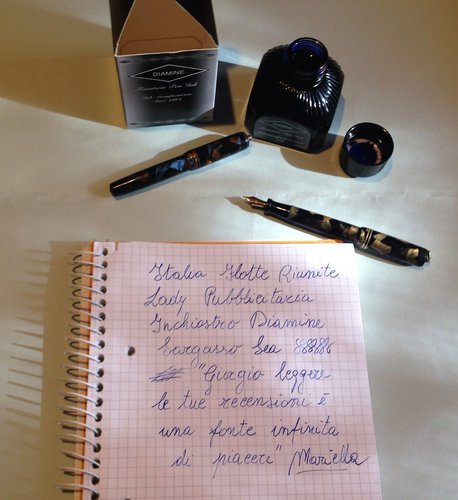 DIAMINE
Fountain Pen Ink
Ink Manufacturers
Since 1864
Italia Flotte Riunite
Lady Pubblicitaria
Inchiostro Diamine
Sargasso Sea
"Giorgio leggere
le tue recensioni è
una fonte infinita
di piacere" Mariella